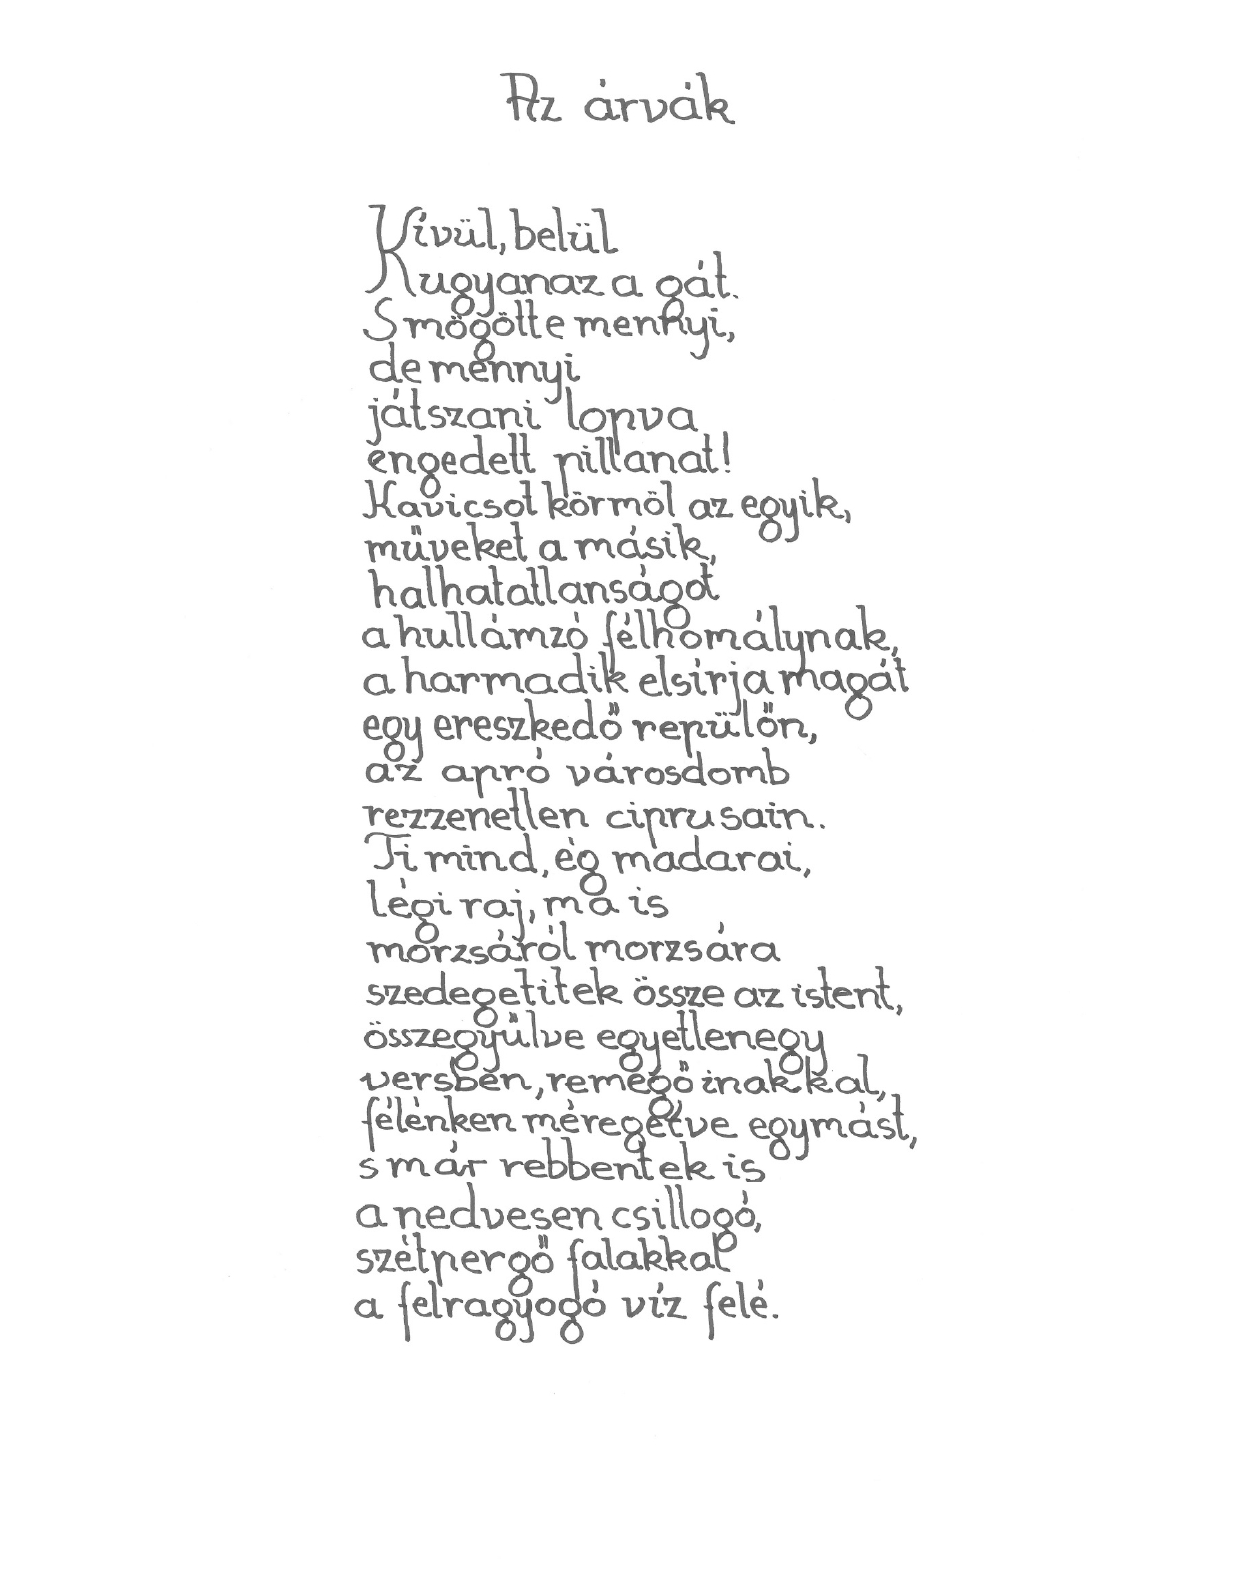 Az árvák
Kívül, belül
ugyanaz a gát.
S mögötte mennyi,
de mennyi
játszani lopva
engedett pillanat!
Kavicsot körmöl az egyik,
műveket a másik,
halhatatlanságot
a hullámzó félhomálynak,
a harmadik elsírja magát
egy ereszkedő repülőn,
az apró városdomb
rezzenetlen ciprusain.
Ti mind, ég madarai,
légi raj, ma is
morzsáról morzsára
szedegetitek össze az istent,
összegyűlve egyetlenegy
versben, remegő inakkal,
félénken méregetve egymást,
s már rebbentek is
a nedvesen csillogó,
szétpergő falakkal
a felragyogó víz felé.